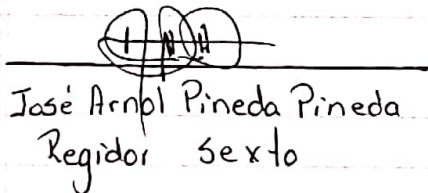 José Arnol Pineda Pineda
Regidor Sexto